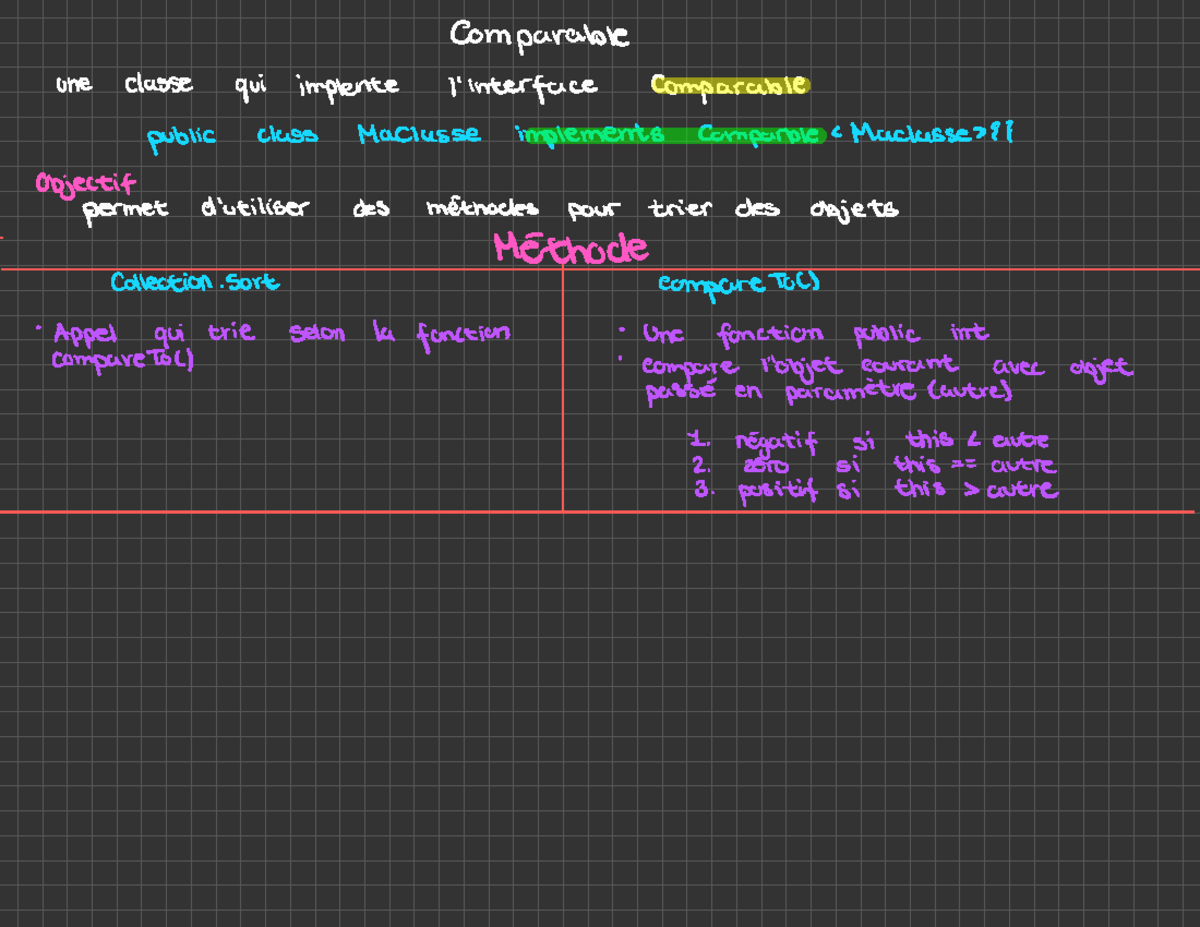 Comparable
une classe qui implente l'interface Comparable
public class MaClasse implements Comparble <Maclasse>{}
Objectif
permet d'utiliser des méthodes pour trier des objets
Méthode
Collection.sort
• Appel qui trie selon la fonction
compareTo()
compareTo()
• Une fonction public int
• compare l'objet courant avec objet
passé en paramètre (autre)
1. négatif si this < autre
2. zéro si this == autre
3. positif si this > autre